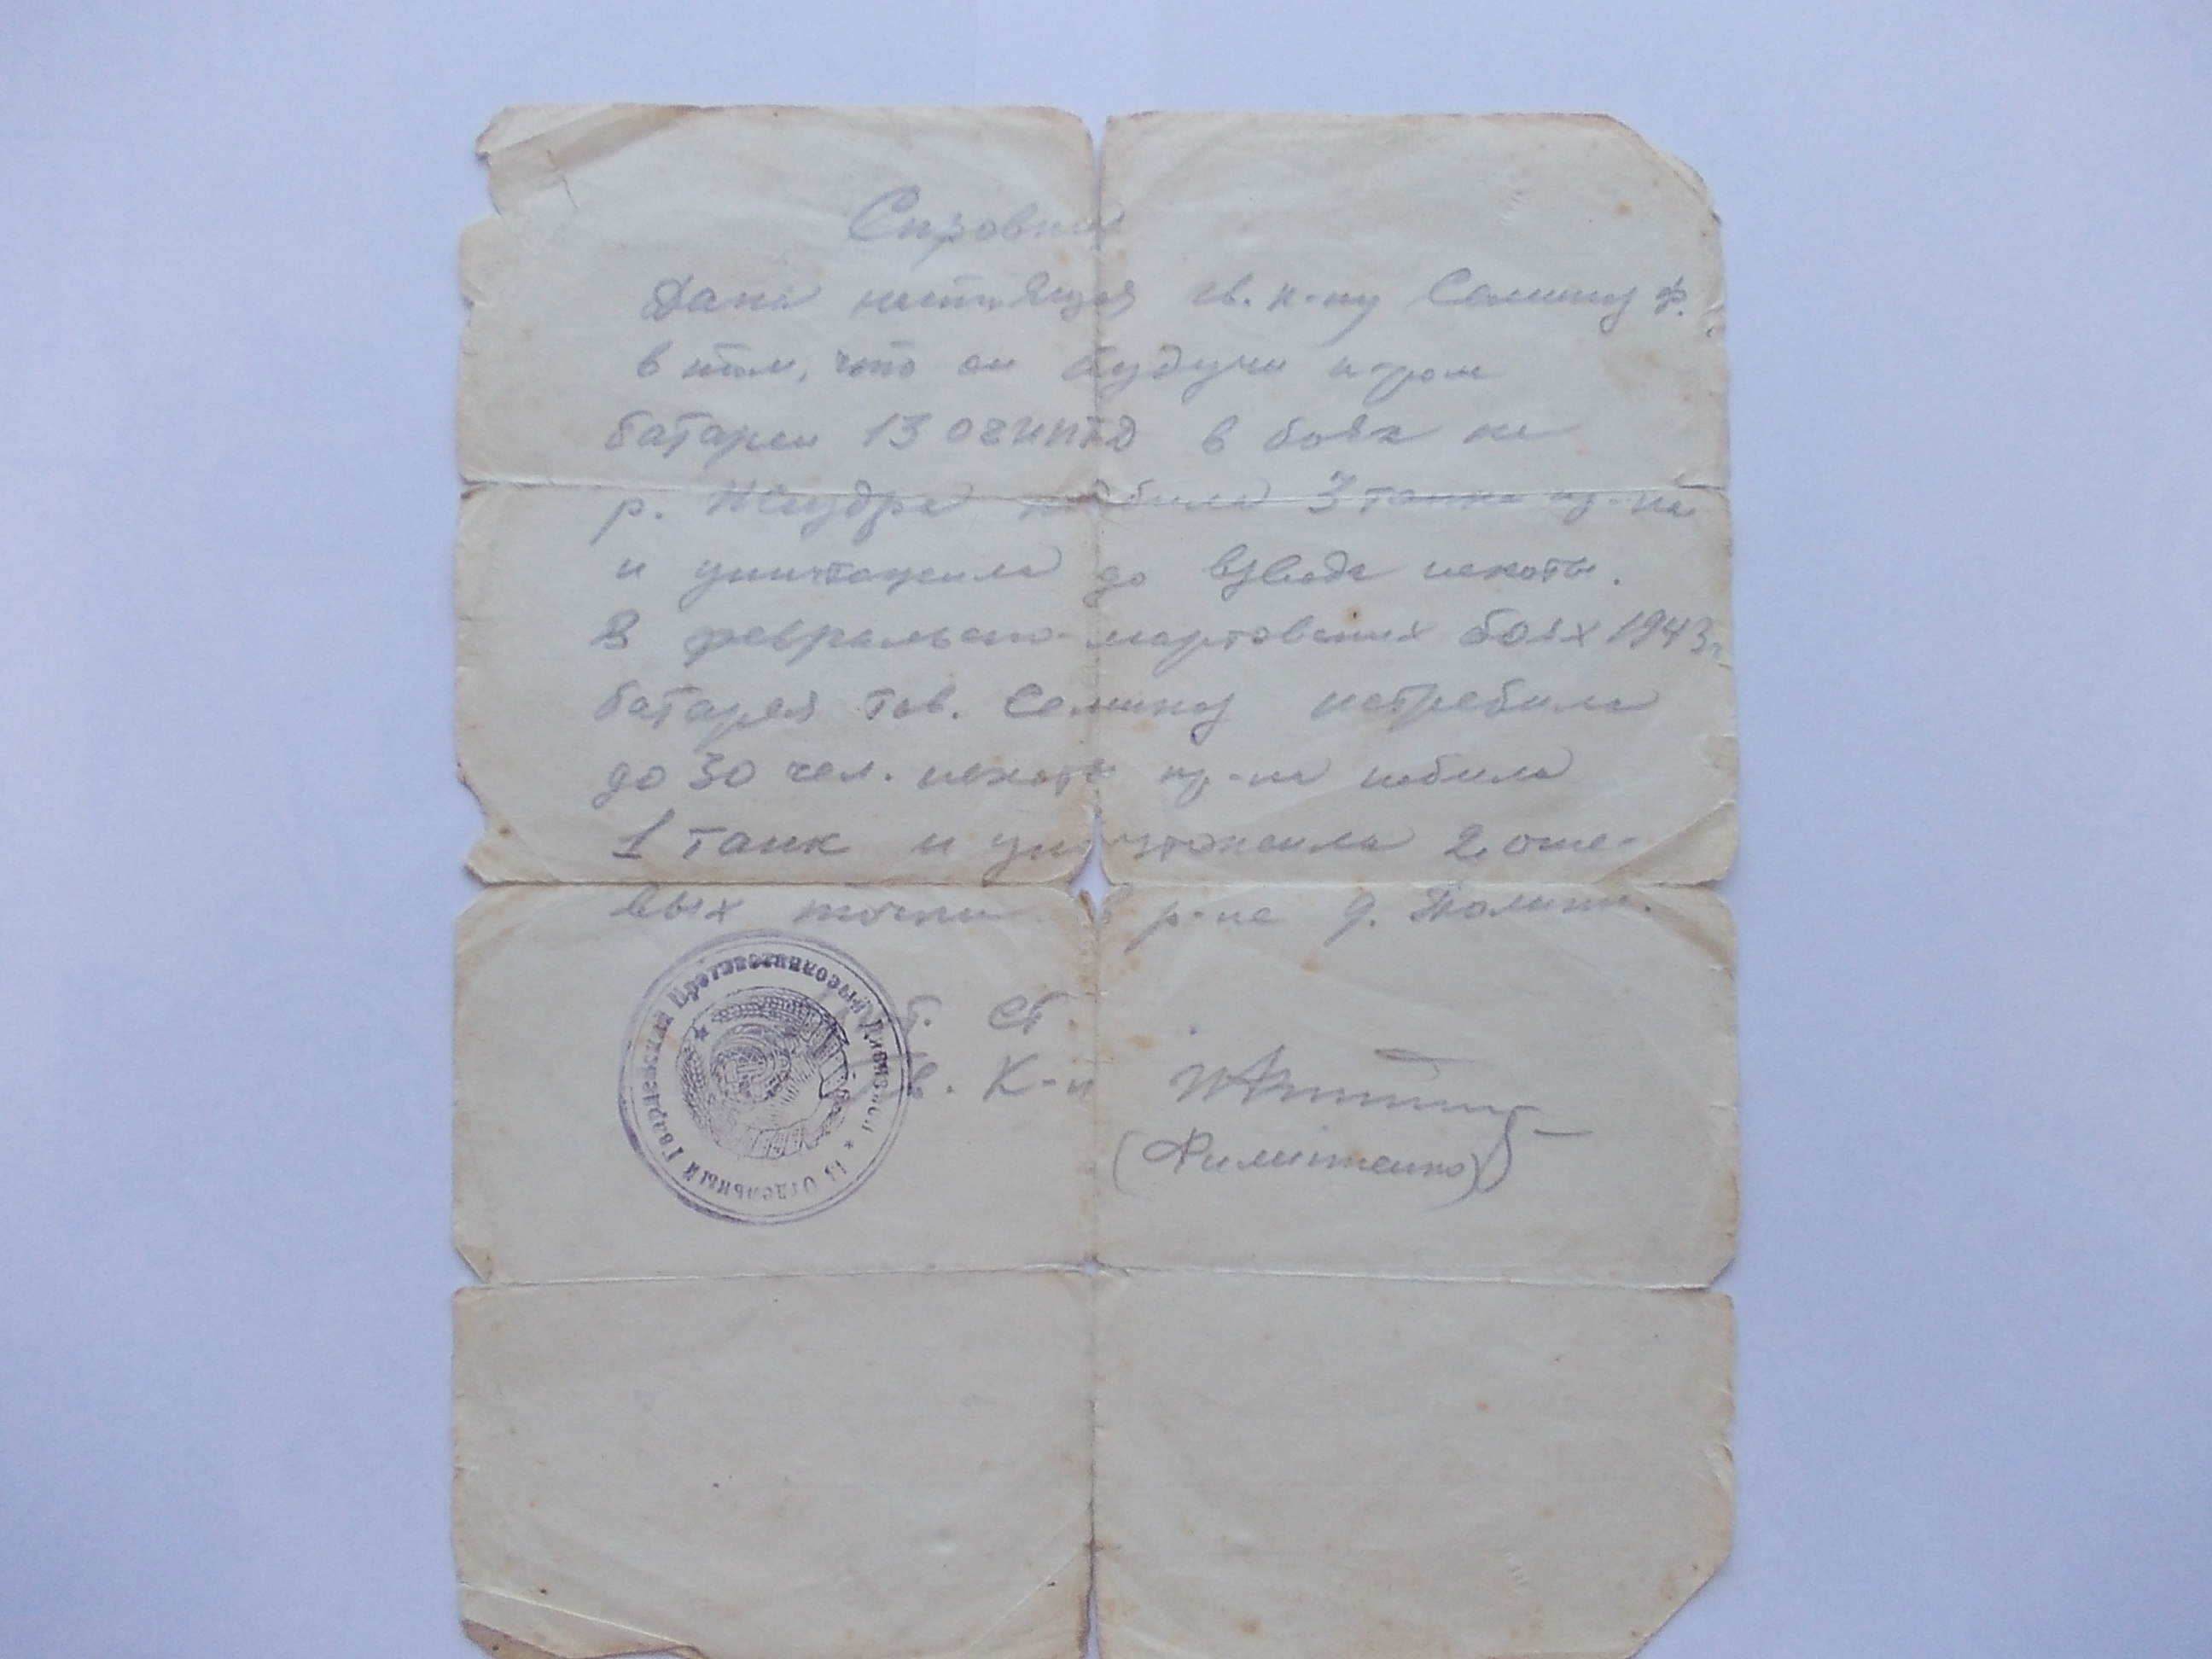 Справка
Дана настоящая гв. к-ну Семину Ф.
в том, что он будучи к-ром
батареи 13 огиптд в боях на
р. Жиздра подбила 3 танка пр-ка
и уничтожила до взвода пехоты.
В февральско-мартовских боях 1943г
батарея тов. Семину истребила
до 30 чел. пехоты пр-ка подбила
1 танк и уничтожила 2 огне-
вых точки в р-не д.
СТ.
Гв. К-н
(Филипченко)
13 Отдельный Гвардейский Противотанковый Дивизион